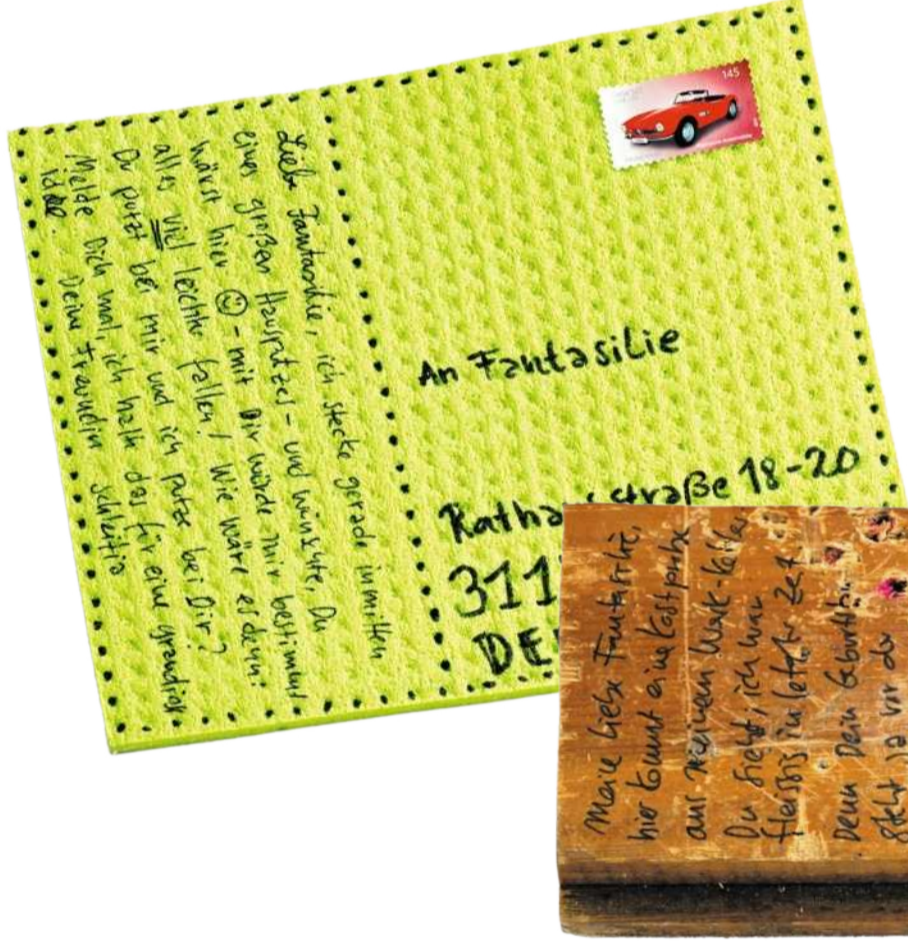 145
Liebe Fantasilie, ich stecke gerade inmitten
eines großen Hausputzes - und wünschte, Du
wärst hier - mit Dir würde mir bestimmt
alles viel leichter fallen! Wie wäre es denn:
Du putzt bei mir und ich putze bei Dir?
Melde Dich mal, ich halte das für eine grandiose
Idee. Deine Freundin
An Fantasilie
Rathausstraße 18-20
311
DE
Meine liebe Fantasilie,
hier kommt eine Kostprobe
aus meinem Werk-Keller,
Du siehst, ich war
fleissig in letzter Zeit
Denn Dein Geburtstag
steht ja vor der